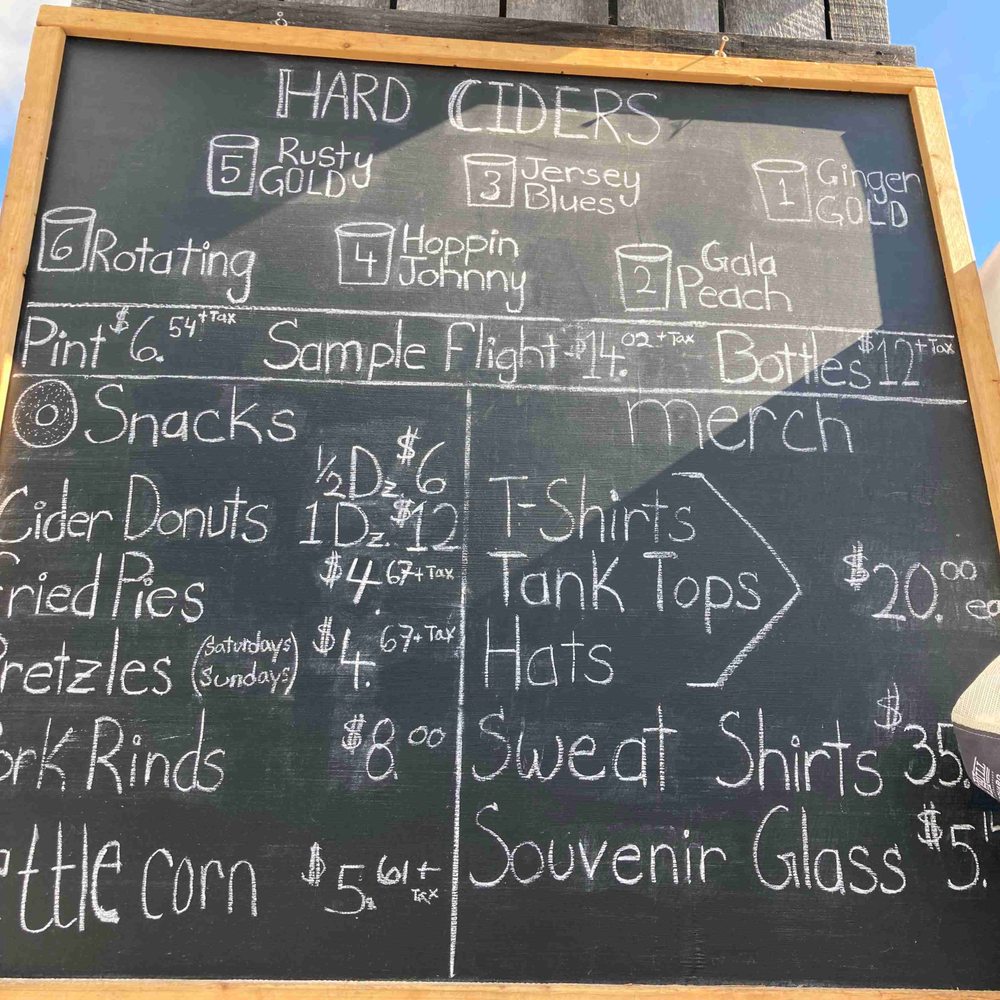 HARD CIDERS
5 Rusty GOLD
3 Jersey Blues
1 Ginger GOLD
6 Rotating
4 Hoppin Johnny
2 Gala Peach
Pint $6.54 + Tax Sample Flight - $14.02 + Tax Bottles $12 + Tax
Snacks
½ Dz. $6
Cider Donuts 1 Dz. $12
Fried Pies $4.67 + Tax
Pretzles (Saturdays Sundays) $4.67 + Tax
ork Rinds $8.00
ttle corn $5.61 + Tax
merch
T-Shirts
Tank Tops $20.00 ea
Hats
Sweat Shirts $35.
Souvenir Glass $5.